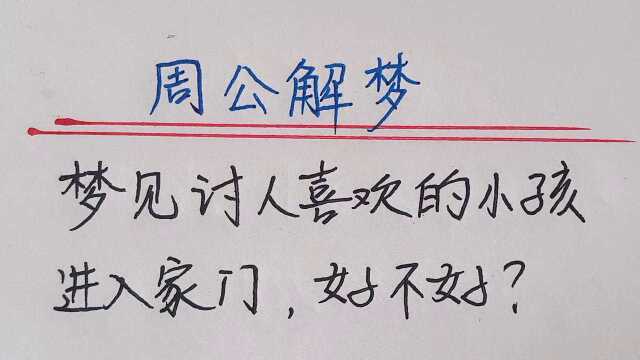 周公解梦
梦见讨人喜欢的小孩
进入家门，好不好？